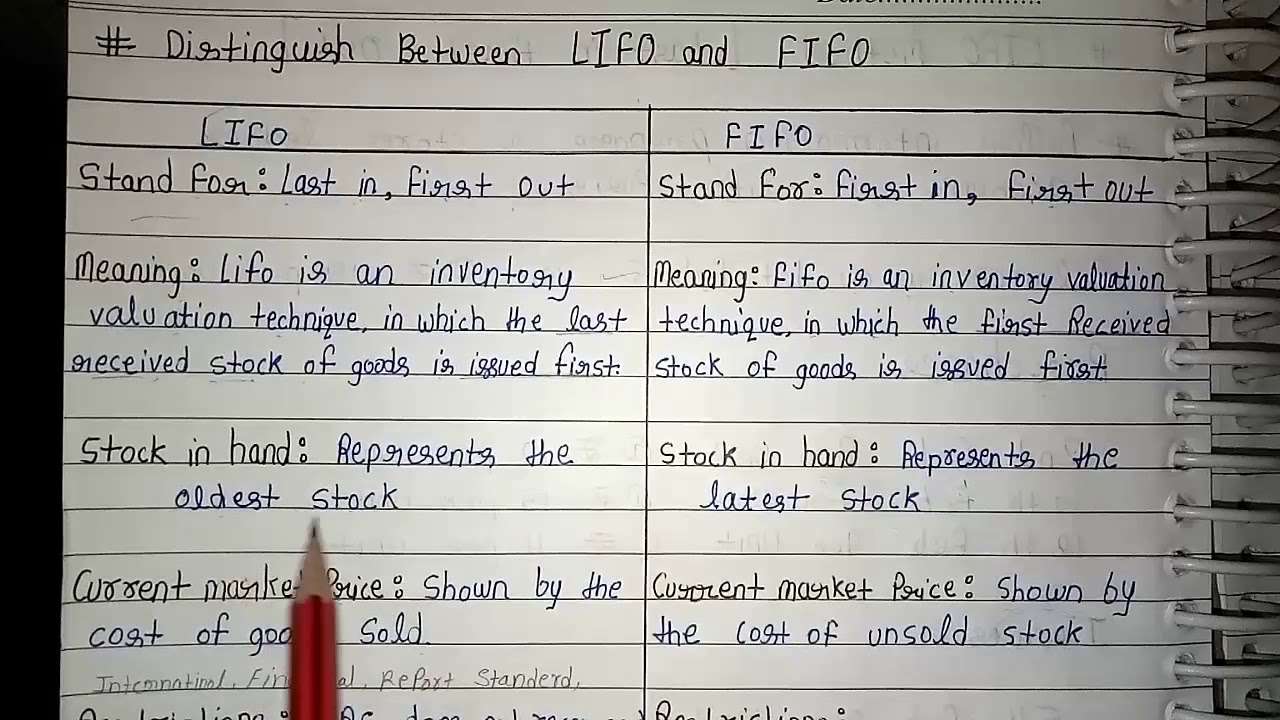 # Distinguish Between LIFO and FIFO
LIFO
Stand For: Last in, First out
Meaning: Lifo is an inventory
valuation technique, in which the last
received stock of goods is issued first.
Stock in hand: Represents the
oldest stock
Current market Price: Shown by the
cost of goods Sold.
International, Financial, Report Standerd,
FIFO
Stand For: First in, First out
Meaning: Fifo is an inventory valuation
technique, in which the first Received
stock of goods is issued first
Stock in hand: Represents the
latest stock
Current market Price: Shown by
the cost of unsold stock